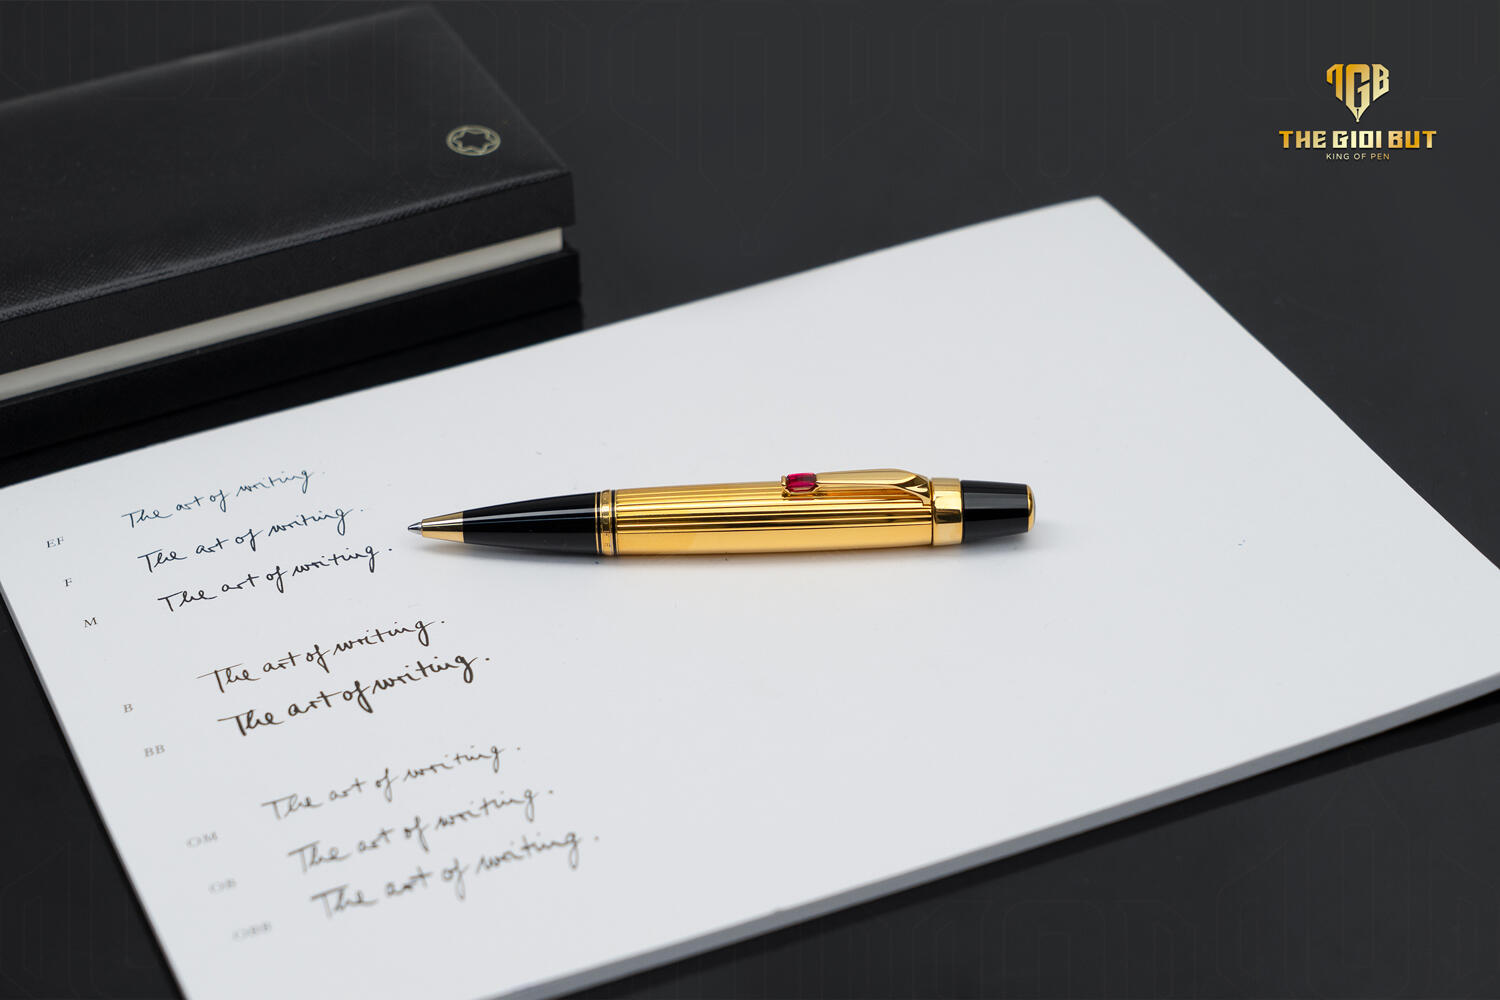 TGB
THE GIOI BUT
KING OF PEN
EF The art of writing.
F The art of writing.
M The art of writing.
B The art of writing.
BB The art of writing.
OM The art of writing.
OB The art of writing.
OBB The art of writing.